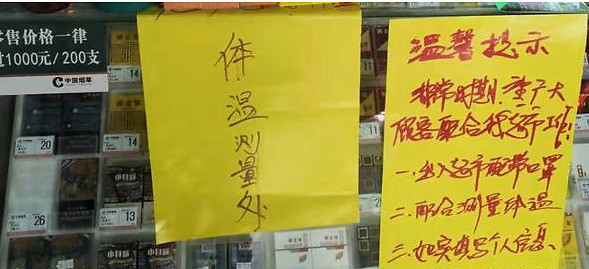 零售价格一律
过1000元/200支
中国烟草
体温测量处
温馨提示
非常时期,望广大
顾客配合我超市工作!
一.出入超市配带口罩
二.配合测量体温
三.如实填写个人信息.
14
14
20
11
13
26